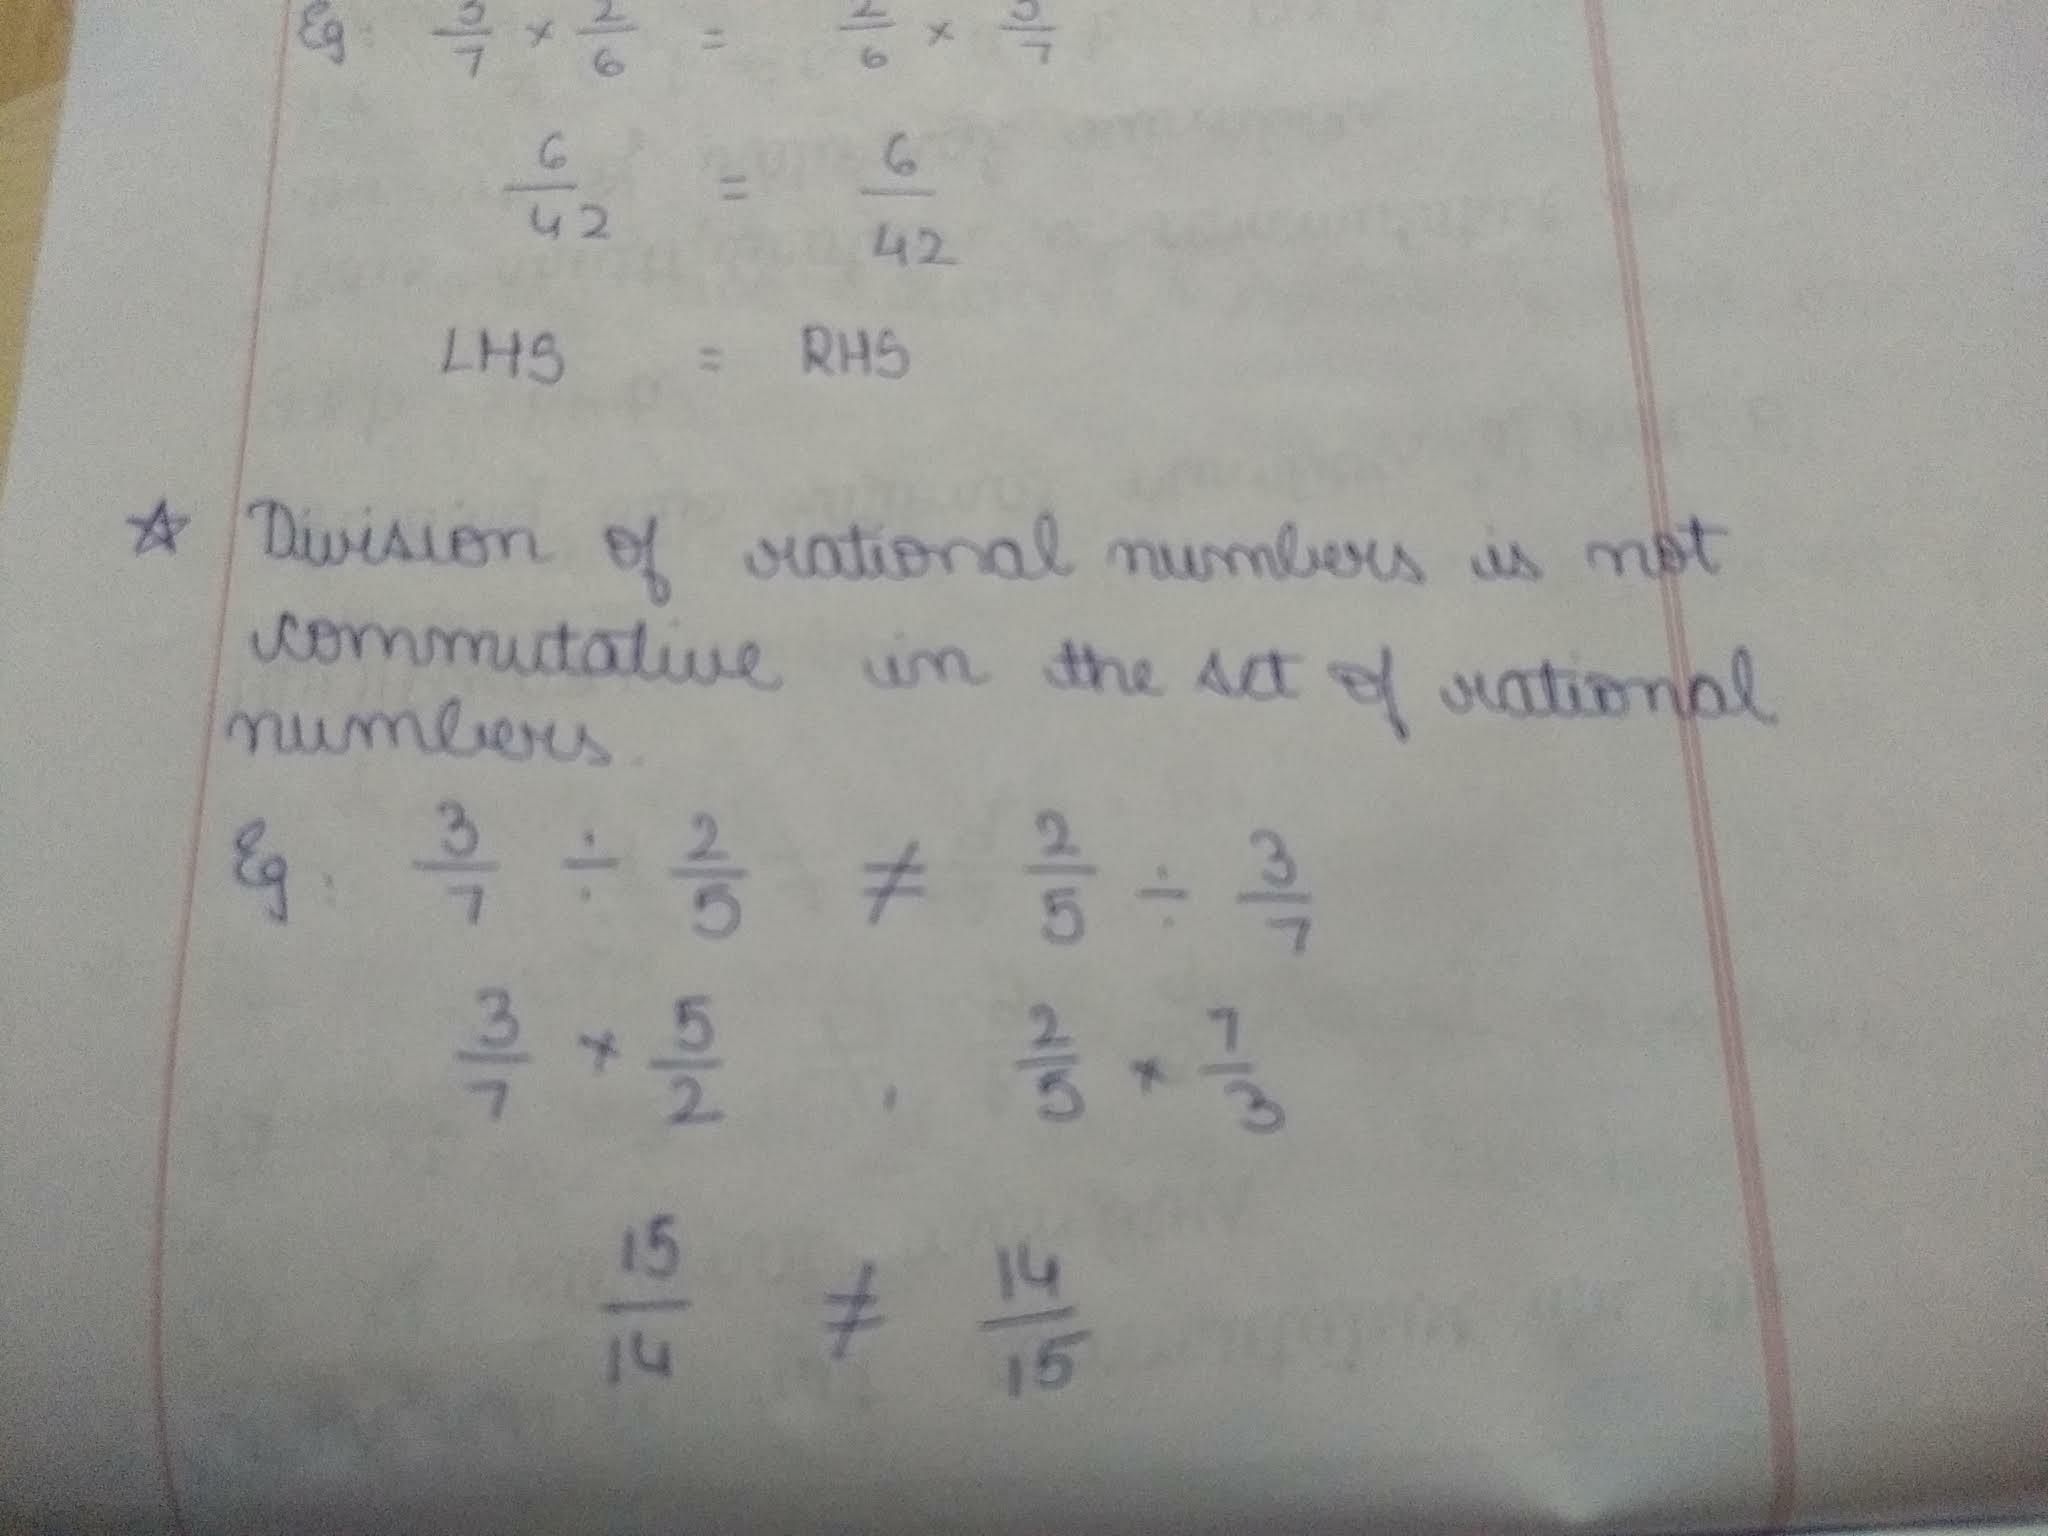 Eg: 3/7 × 2/6 = 2/6 × 3/7
6/42 = 6/42
LHS = RHS
☆ Division of rational numbers is not
commutative in the set of rational
numbers.
Eg: 3/7 ÷ 2/5 ≠ 2/5 ÷ 3/7
3/7 × 5/2 , 2/5 × 7/3
15/14 ≠ 14/15